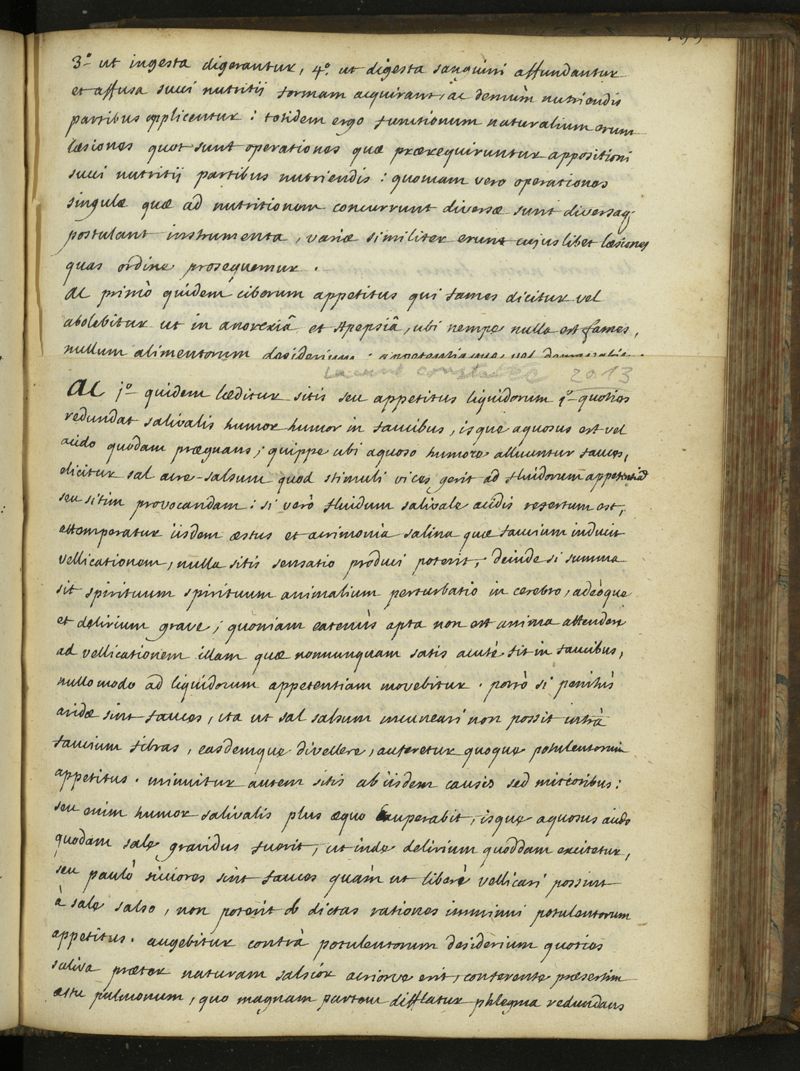 3.º ut ingesta digerantur, 4.º ut digesta sanguini affundantur
et affusa succi nutritii formam acquirant, ac demùm nutriendis
partibus applicentur : totidem ergo functionum naturalium erunt
læsiones quot sunt operationes quæ prærequiruntur appositioni
succi nutritii partibus nutriendis : quoniam vero operationes
singulæ quæ ad nutritionem concurrunt diversæ sunt diversaq
postulant instrumenta, variæ similiter erunt cujuslibet læsiones
quas ordine prosequemur.
ac primò quidem ciborum appetitus qui fames dicitur vel
abolebitur ut in anorexiâ et apepsiâ, ubi nempe nulla est fames,
nullum alimentorum desiderium :
lacune constatée 2013
ac 1.º quidem læditur sitis seu appetitus liquidorum 1.º quoties
redundat salivalis humor humor in faucibus, isque aquosus est vel
acido quodam prægnans ; quippe ubi aquoso humore alluuntur fauces,
elicitur sal acre-salsum quod stimuli vices gerit ad fluidorum appetentiam
seu sitim provocandam : si verò fluidum salivale acidis refertum est,
attemperatur iisdem æstus et acrimonia salina quæ faucium inducit
vellicationem, nulla sitis sensatio produci poterit, deinde si summa
sit spirituum spirituum animalium perturbatio in cerebro, adeòque
et delirium grave ; quoniam eatenùs apta non est anima attendere
ad vellicationem illam quæ nonnunquam satis acutè fit in faucibus,
nullo modo ad liquidorum appetentiam movebitur. porrò si penitùs
aridæ sint fauces, ita ut sal salsum incuneari non possit intrà
faucium fibras, easdemque divellere, auferetur quoque potulentorum
appetitus. minuitur autem sitis ab iisdem causis sed mitioribus :
seu enim humor salivalis plus æquo exuperabit, isque aquosus acido
quodam sale gravidus fuerit, ut inde delirium quoddam excitetur,
seu paulò sicciores sint fauces quàm ut liberè vellicari possint
à sale salso, non poterit ob dictas rationes imminui potulentorum
appetitus. augebitur contrà potulentorum desiderium quoties
saliva præter naturam salsior acriorve erit, conferente præsertim
æstu pulmonum, quo magnam partem difflatur phlegma redundans